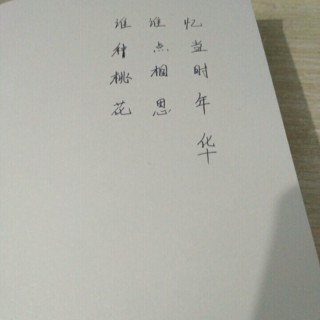 忆当时年华
谁点相思
谁种桃花